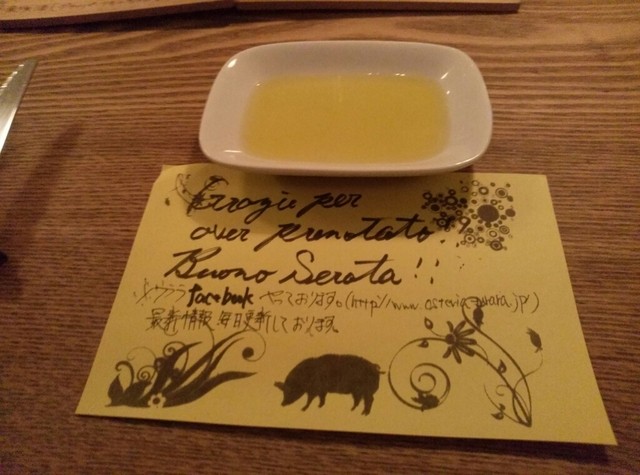 Grazie per
aver prenotato!!
Buona Serata!!
facebook やっております。
最新情報、毎日更新しております。